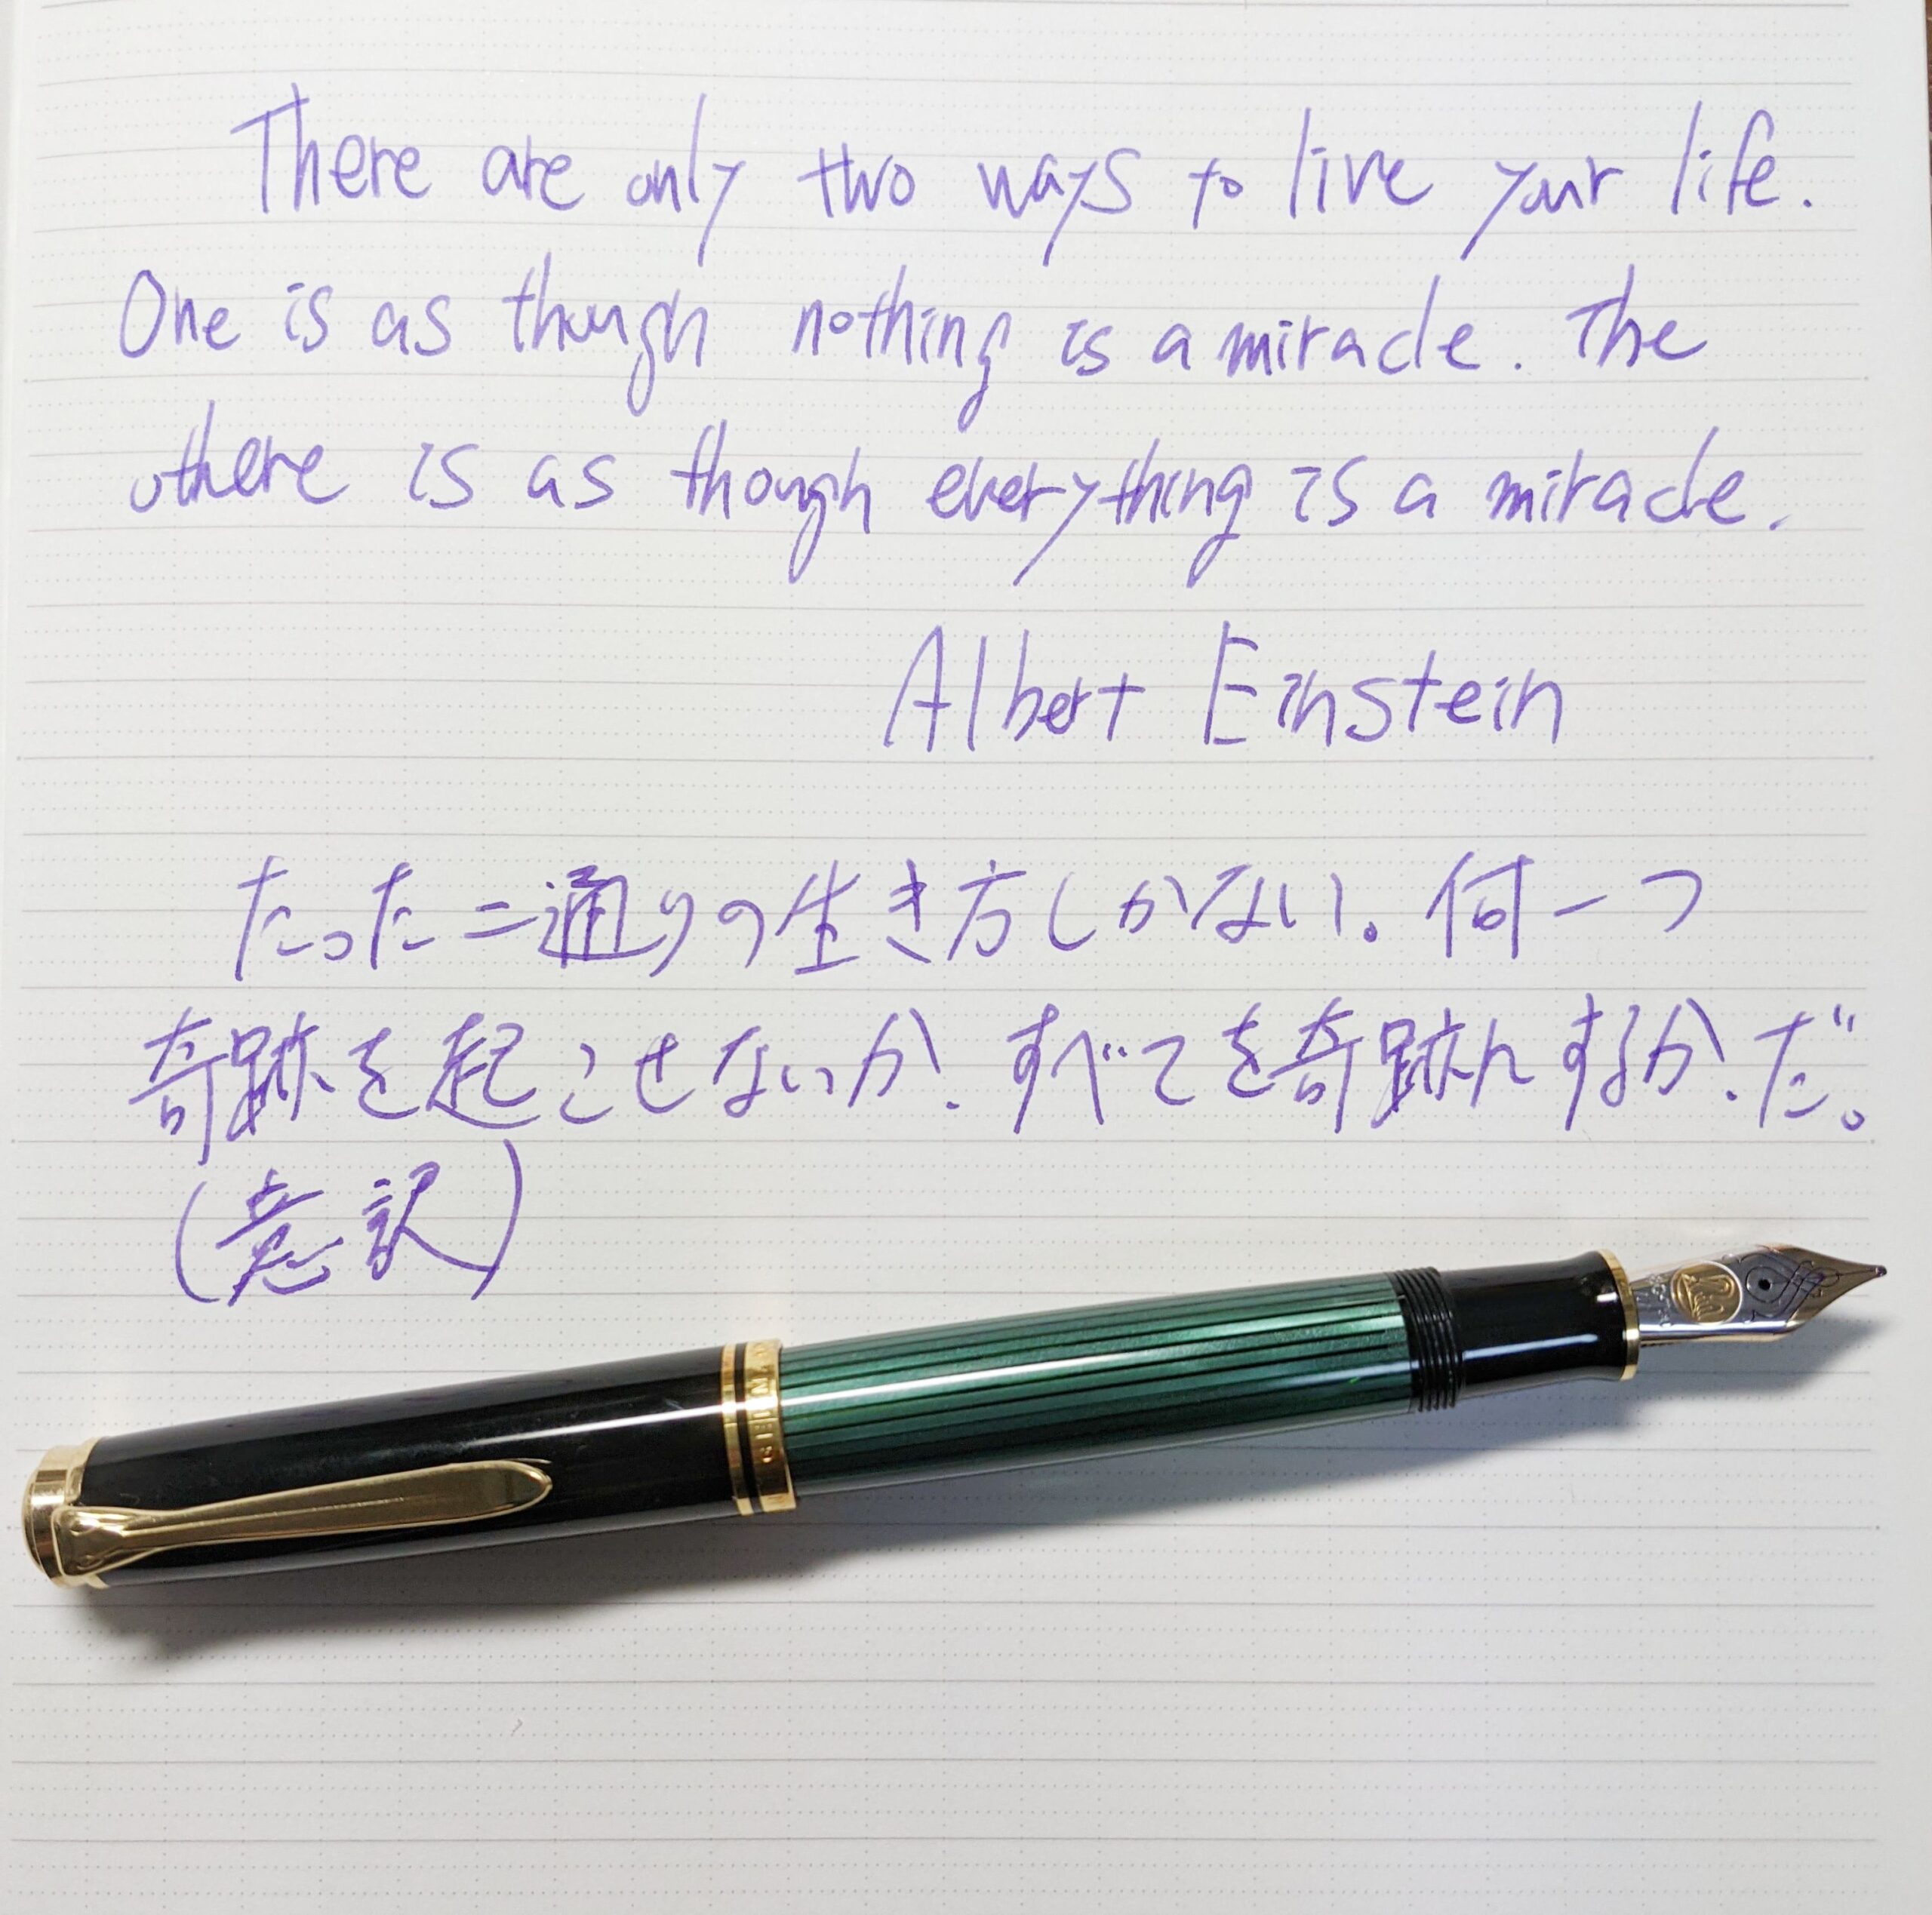 There are only two ways to live your life.
One is as though nothing is a miracle. The
othere is as though everything is a miracle.
Albert Einstein
たった二通りの生き方しかない。何一つ
奇跡を起こせないか、すべてを奇跡にするか、だ。
(意訳)